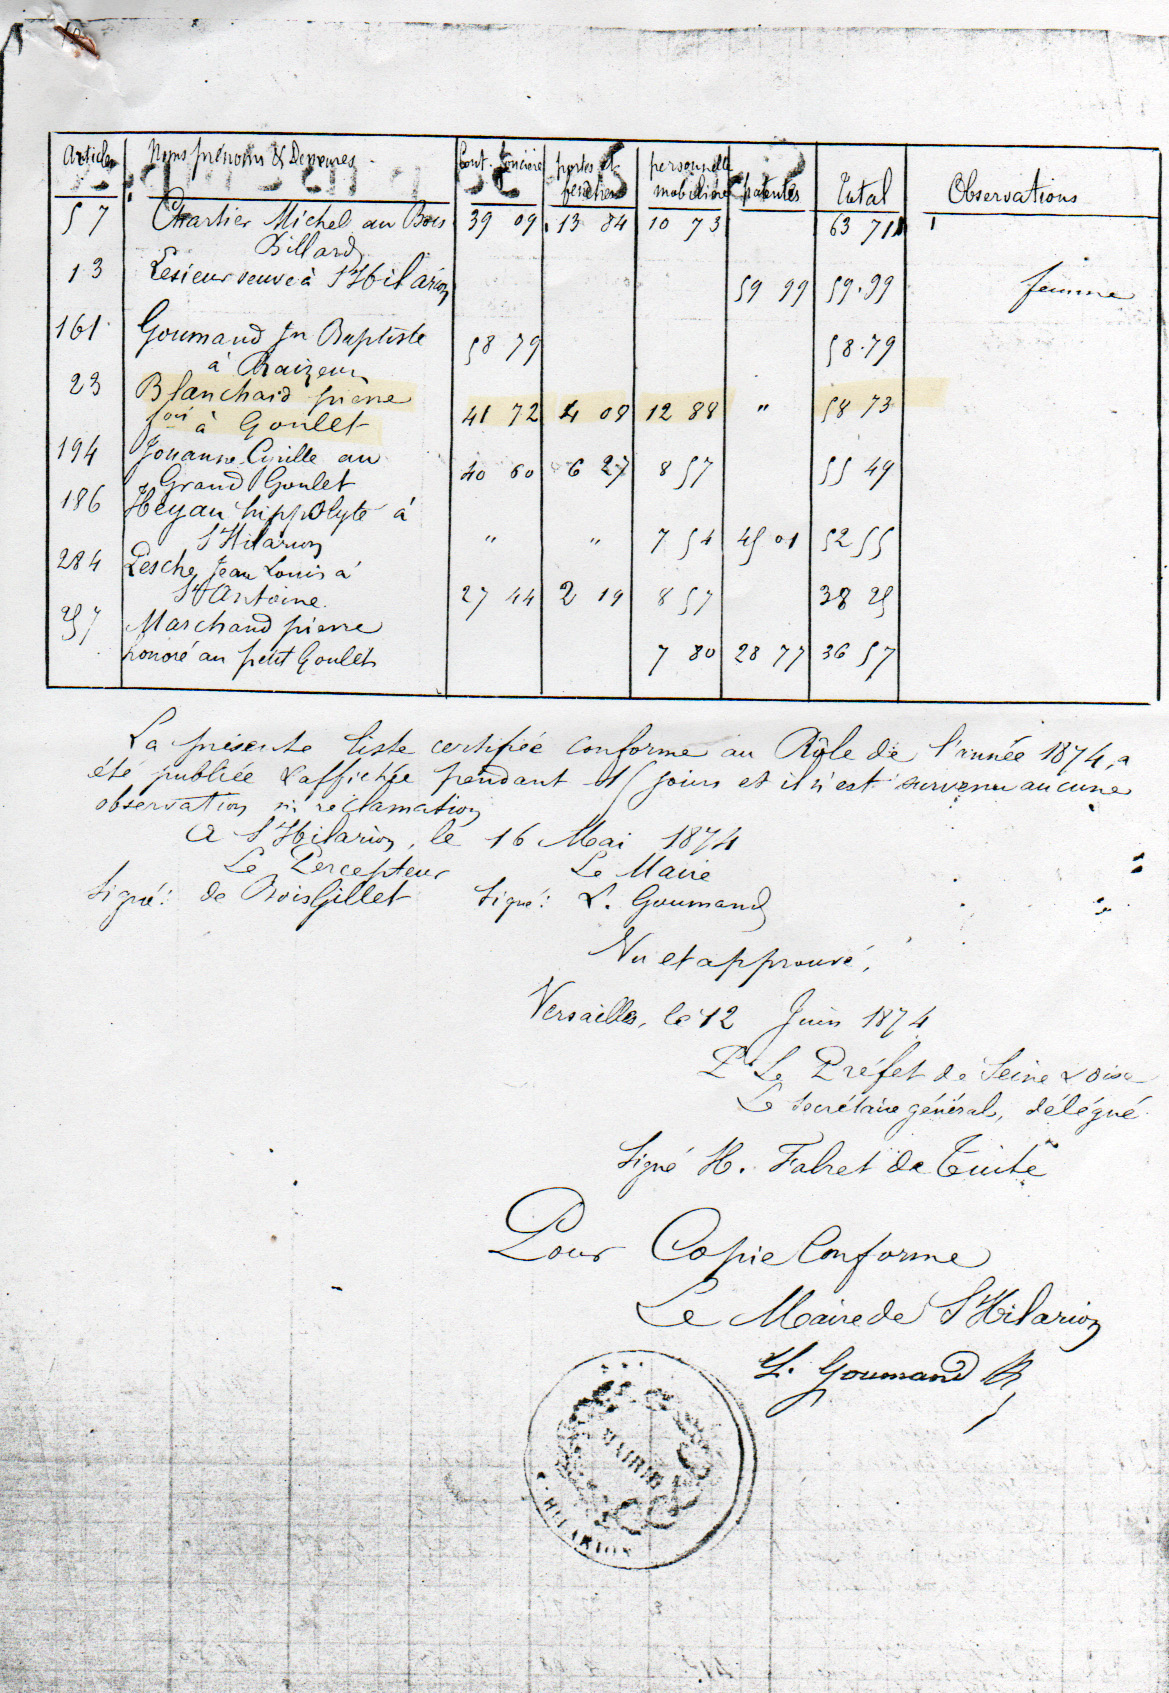 Articles Noms prénoms & Demeures Cont. foncière portes et fenêtres personnelle mobilière Patentes Total Observations
57 Chartier Michel au Bois 39 09 13 84 10 73 63 71
Billard
13 Lesieur veuve à St Hilarion 59 99 59.99 femme
161 Goumand Jn Baptiste 58 79 58.79
à Raizeux
23 Blanchard pierre 41 72 4 08 12 88 " 58 73
à Goulet
194 Jouanne Cirille au 40 60 6 27 8 57 55 49
Grand Goulet
186 Heyau hippolyte à
St Hilarion " " 7 54 45 01 52 55
284 Pesche Jean Louis à
St Antoine. 27 44 2 19 8 57 38 25
257 Marchand pierre
honoré au petit Goulet 7 80 28 77 36 57
La présente liste certifiée conforme au Rôle de l'année 1874, a
été publiée & affichée pendant 15 jours et il n'est survenu aucune
observation ni réclamation
A St Hilarion, le 16 Mai 1874
Le Percepteur Le Maire
Signé: de BoisGillet Signé: L. Goumand
Vu et approuvé,
Versailles, le 12 Juin 1874
Pr Le Préfet de Seine & Oise
Le secrétaire général, délégué
Signé H. Fabret de
Pour Copie Conforme
Le Maire de St Hilarion
L. Goumand
MAIRIE
St HILARION